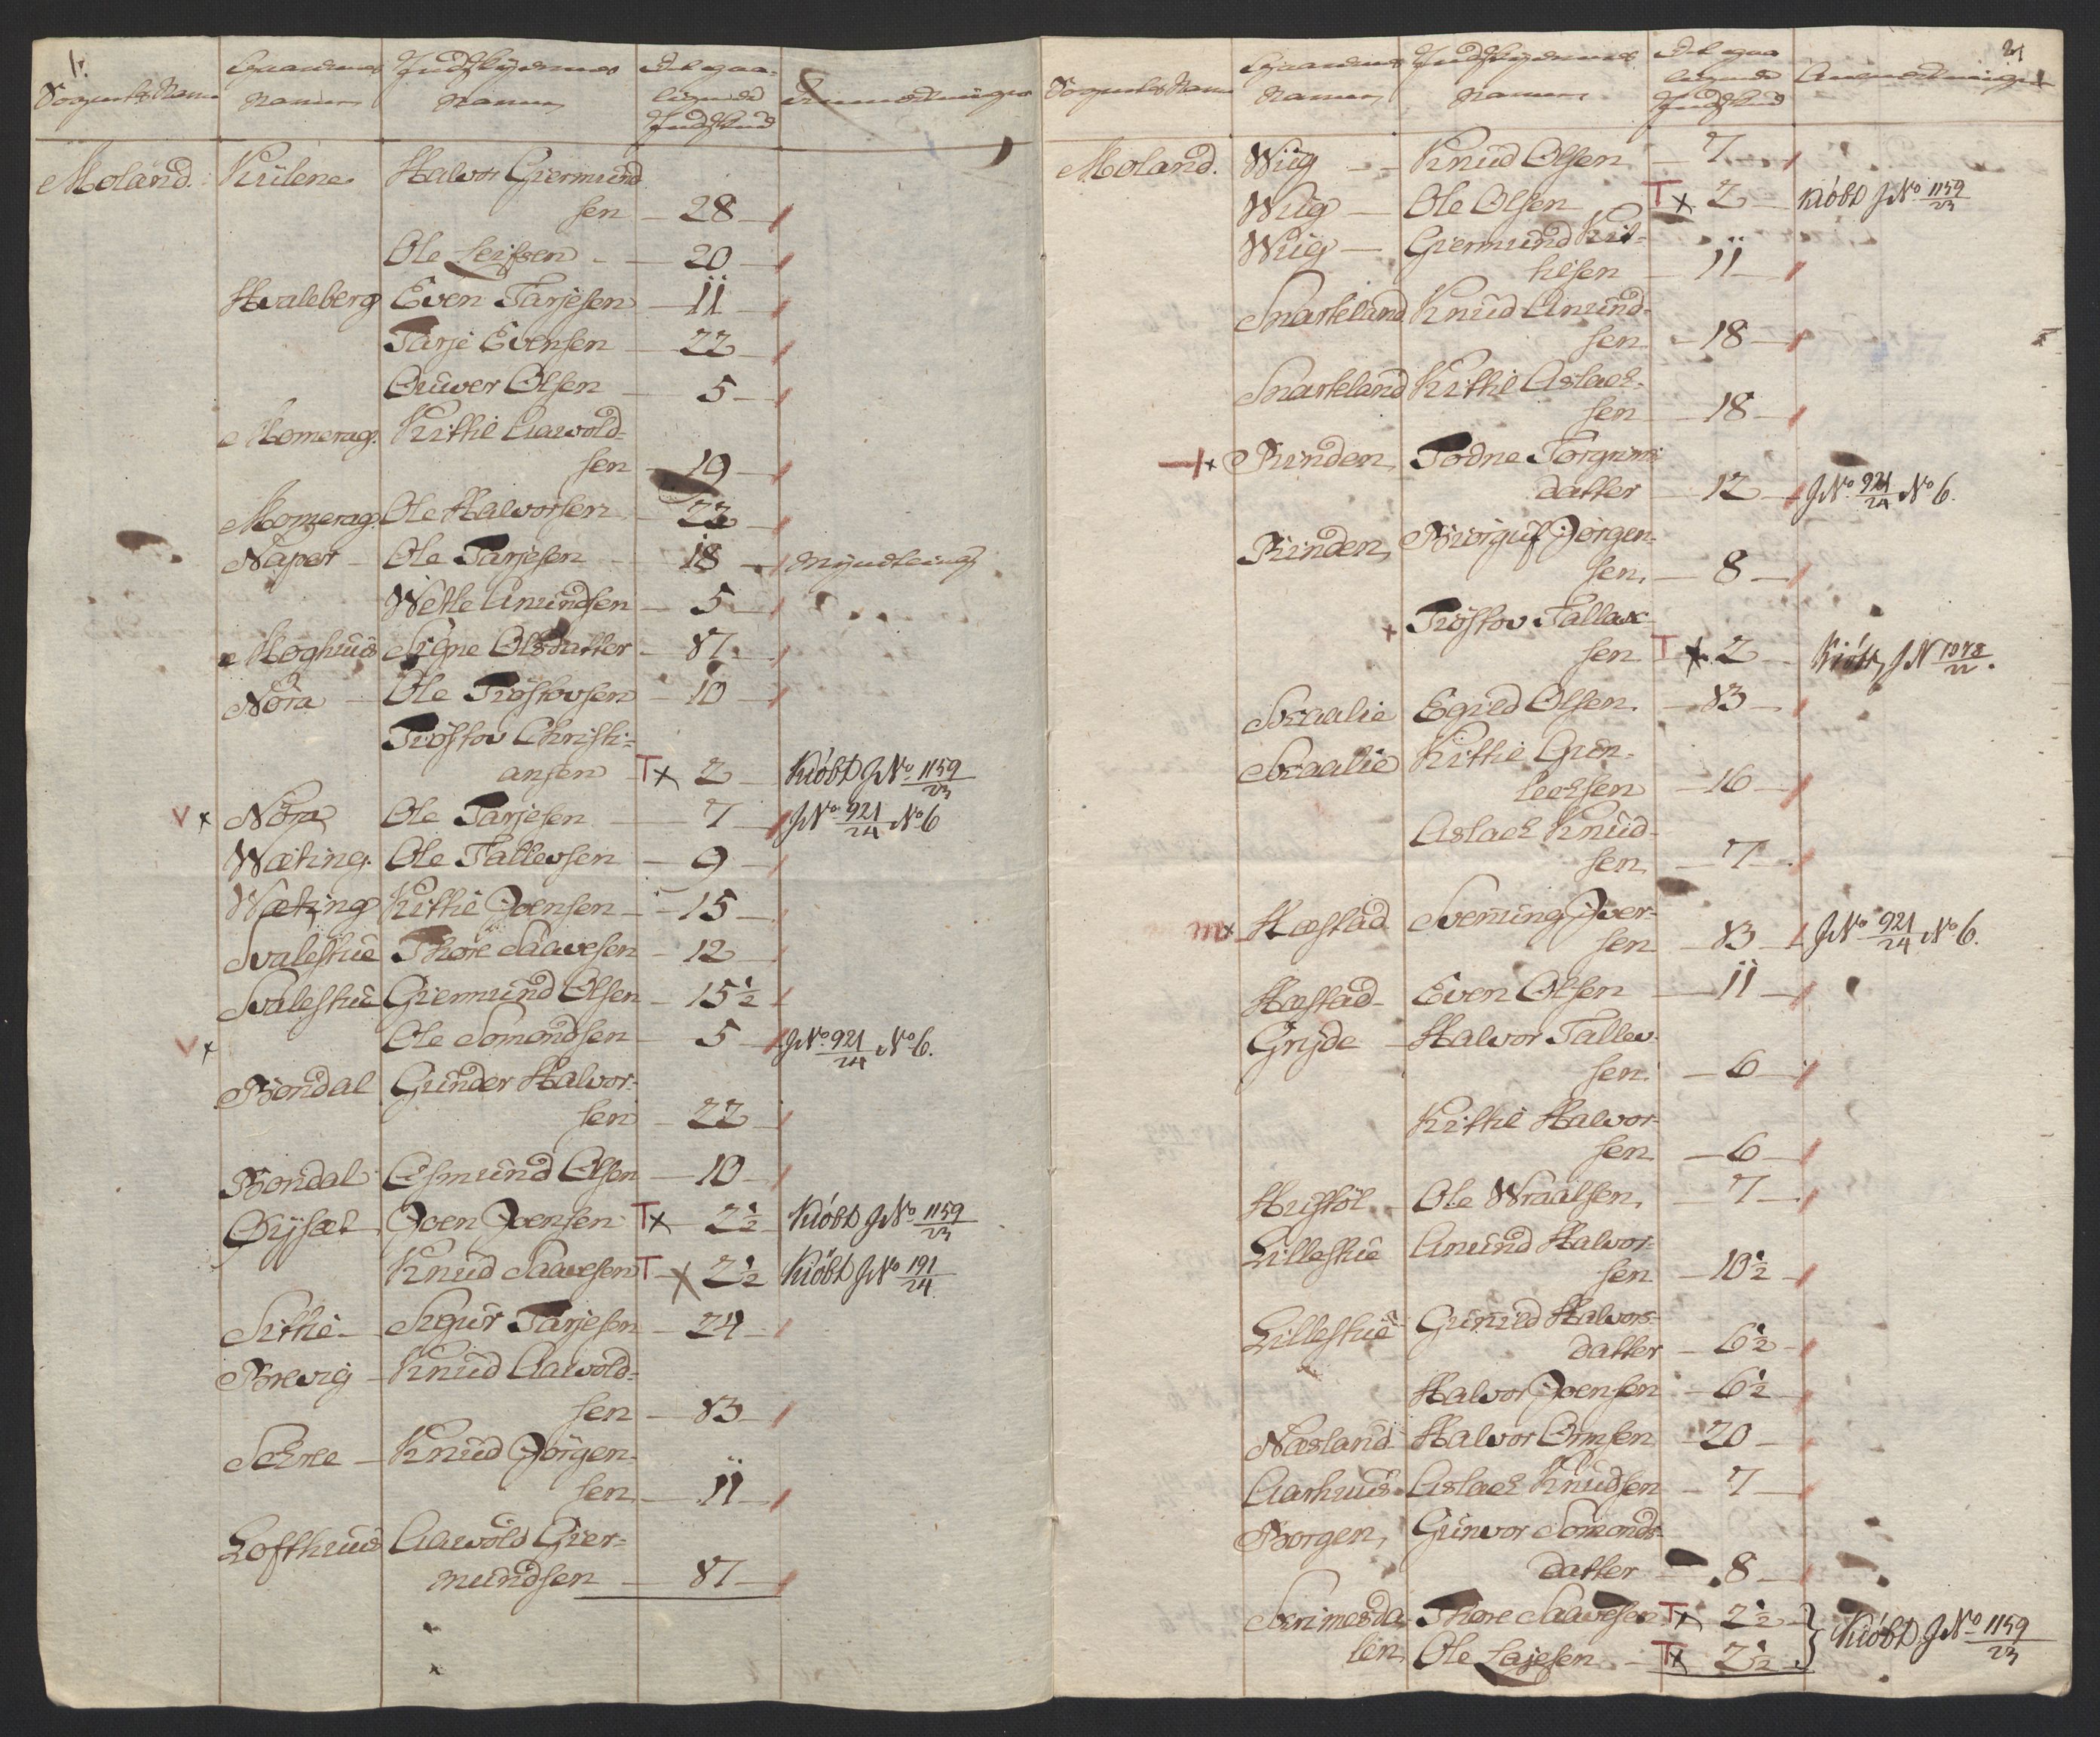 1.
Sognets Navn Gaardenes Navne Indskydernes Navne Det paa- lignede Indskud Anmerkninger
Moland. Kiilene Halvor Giermund
sen 28
Ole Leifsen 20
Hvaleberg Even Tarjesen 11
Tarje Evensen 22
Ouwer Olsen 5
Momerag. Kittil Aawold-
sen 19
Momerag. Ole Halvorsen 22
Naper Ole Tarjesen 18 Myndling
Wetle Anundsen 5
Moghuus Signe Olsdatter 87
Nora Ole Trostovsen 10
Trostov Christi-
ansen Tx 2 Kiöbt JNo 1159/23
V x Nora Ole Tarjesen 7 JNo 921/24 No 6
Wæting. Ole Tallevsen 9
Wæting Kittil Joensen 15
Svalestue Thore Saavesen 12
Svalestue Giermund Olsen 15½
V x Ole Somondsen 5 JNo 921/24 No 6.
Bondal Gunder Halvor-
sen 22
Bondal Osmund Olsen 10
Öysæt Joen Joensen Tx 2½ Kiöbt JNo 1159/23
Knud Saavesen T x 2½ Kiöbt JNo 191/24
Sittie Sigur Tarjesen 24
Brevig Knud Aawold-
sen 83
Schree Knud Jörgen-
sen 11
Lofthuus Aawold Gier-
mundsen 87
2
Sognets Navn Gaardenes Navne Indskydernes Navne Det paa lignede Indskud Anmerkninger
Moland. Wiig Knud Olsen 7
Wiig Ole Olsen Tx 2 Kiöbt JNo 1159/23
Wiig Giermund Kit-
tilsen 11
Snarteland Knud Anund-
sen 18
Snarteland Kittil Aslach-
sen 18
x Rinden, Todne Torgrims
datter 12 JNo 921/24 No 6.
Rinden, Biörguf Jörgen-
sen, 8
x Tröstov Tallak-
sen T x 2 Kiöbt, JN 1078/22.
Straalie Egild Olsen. 83
Straalie Kittil Gun-
lechsen 16
Aslach Knud-
sen, 7
m x Hæstad Svenning Iver-
sen 83 JNo 921/24 No 6.
Hæstad Even Olsen 11
Gryde Halvor Tallev-
sen 6
Kittil Halvor-
sen 6
Hustöl Ole Wraalsen, 7
Lillestue Anund Halvor-
sen 10½
Lillestue Gunild Halvors-
datter 6½
Halvor Joensen 6½
Næsland Halvor Ormsen 20
Aarhuus Aslach Knudsen 7
Borgen, Gunvor Somonds-
datter 8
Skrimesda- Thore Saavesen Tx 2½
len, Ole Lajesen Tx 2½ } Kiöbt JNo 1159/23